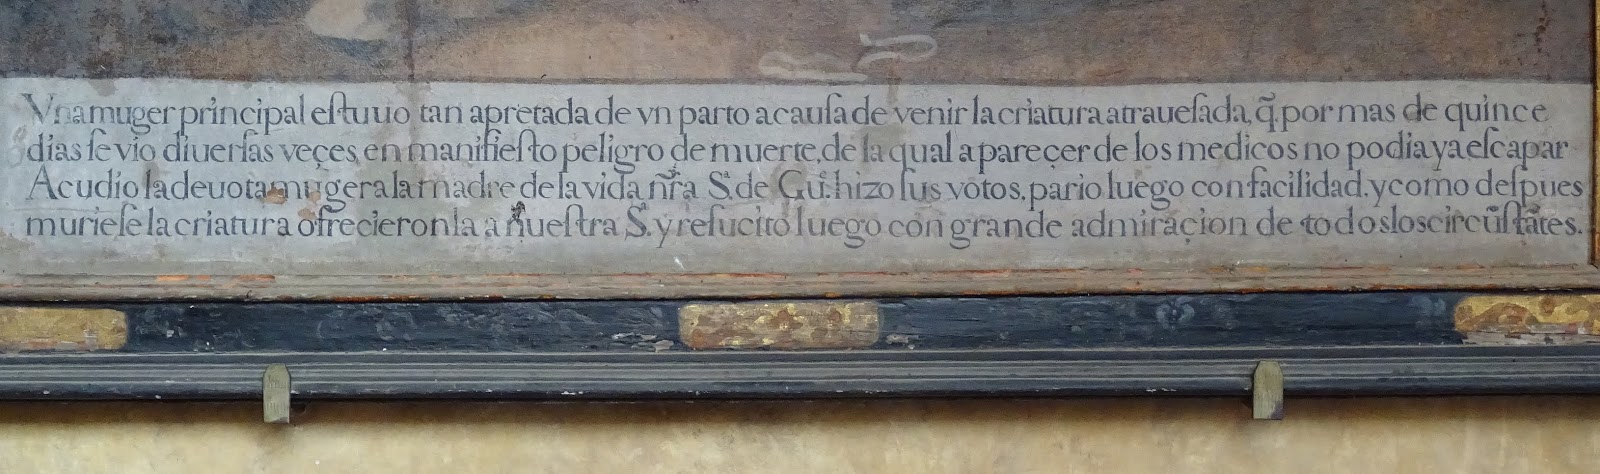 Vna muger principal eſtuuo tan apretada de vn parto a cauſa de venir la criatura atraueſada, q̃ por mas de quince
dias ſe vio diuerſas veçes en manifieſto peligro de muerte, de la qual a pareçer de los medicos no podia ya eſcapar
Acudio la deuota muger a la madre de la vida nr̃a Sª. de Guẽ. hizo ſus votos, pario luego con facilidad, y como deſpues
murieſe la criatura ofrecieronla a nueſtra Sª. y reſucito luego con grande admiraçion de todos los circũſtãtes.